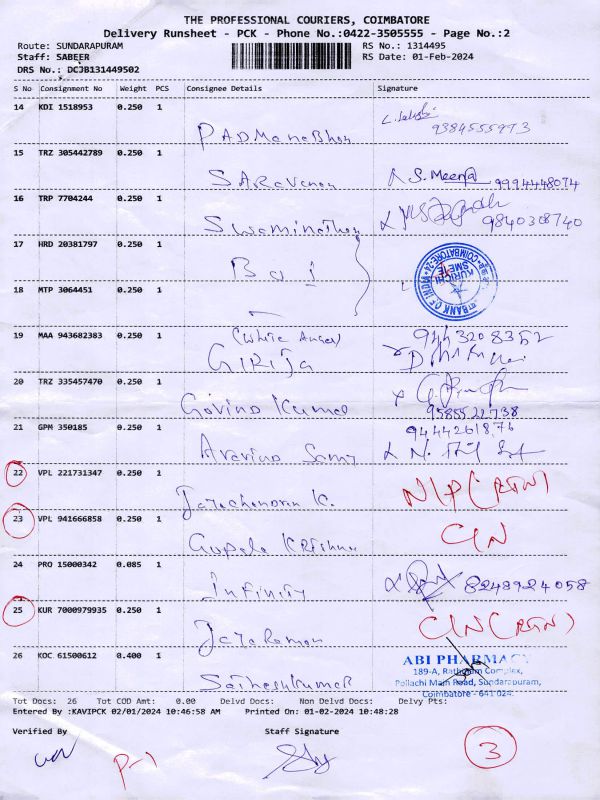 THE PROFESSIONAL COURIERS, COIMBATORE
Delivery Runsheet - PCK - Phone No.:0422-3505555 - Page No.:2
Route: SUNDARAPURAM RS No.: 1314495
Staff: SABEER RS Date: 01-Feb-2024
DRS No.: DCJB131449502
S No Consignment No Weight PCS Consignee Details Signature
14 KDI 1518953 0.250 1
Padmanabhan 9384555973
15 TRZ 305442789 0.250 1
Saravanan S. Meena 9994448074
16 TRP 7704244 0.250 1
Swaminathan 9840308740
17 HRD 20381797 0.250 1
BOI BANK OF INDIA KURICHI SME COIMBATORE-24
18 MTP 3064451 0.250 1
19 MAA 943682383 0.250 1 (White Angel) 9443208352
Girija
20 TRZ 335457470 0.250 1
Govind Kumar 9585522738
21 GPM 350185 0.250 1 9444261876
Aravind Samy
22 VPL 221731347 0.250 1
Jayachandran K. N/P (RTN)
23 VPL 941666858 0.250 1
Gopala Krishnan C/N
24 PRO 15000342 0.085 1
Infinity 8248924058
25 KUR 7000979935 0.250 1
Jayaraman C/N (RTN)
26 KOC 61500612 0.400 1
Satheshkumar
ABI PHARMACY
189-A, Rathinam Complex,
Pollachi Main Road, Sundarapuram,
Coimbatore - 641 024.
Tot Docs: 26 Tot COD Amt: 0.00 Delvd Docs: Non Delvd Docs: Delvy Pts:
Entered By :KAVIPCK 02/01/2024 10:46:58 AM Printed On: 01-02-2024 10:48:28
Verified By Staff Signature
P-1 3